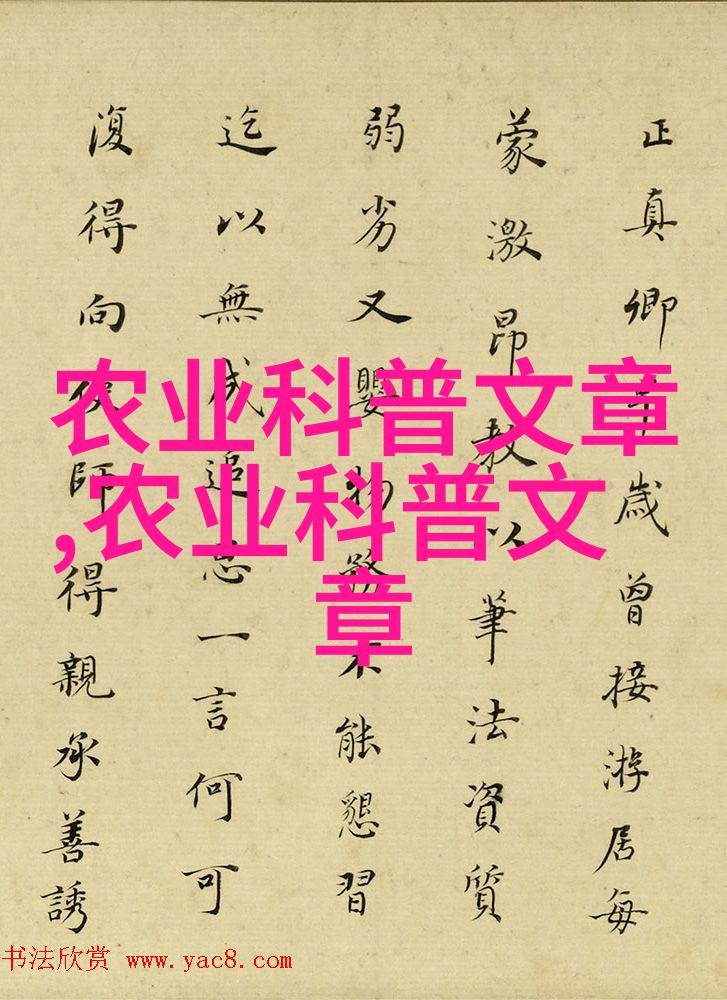 正真卿早歲曾接游居每
蒙激昂教以筆法資質
弱劣又嬰物務不能懇習
迄以無成追思一言何可
復得向使師得親承善誘
农业科普文章
,农业科普文
章
书法欣赏 www.yac8.com